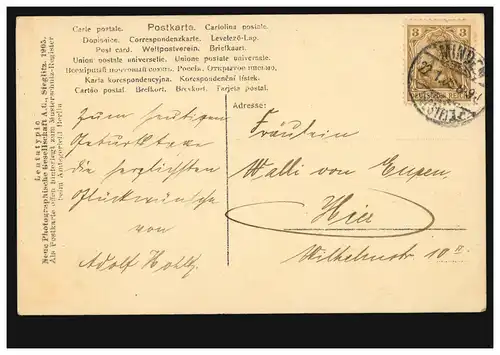 Carte postale. Postkarte. Cartolina postale.
Dopisnice. Correspondenzkarte. Levelező-Lap.
Post card. Weltpostverein. Briefkaart.
Union postale universelle. Unione postale universale.
Всемірный почтовый союзъ. Россія. Открытое письмо.
Karta korespondencyjna. Korespondenční lístek.
Cartão postal. Brefkort. Brevkort. Tarjeta postal.
Lentatypie
Neue Photographische Gesellschaft A.G., Steglitz 1905.
Als Postkarte offen hinterlegt zum Musterschutz-Register
beim Amtsgericht Berlin
Zum heutigen
Geburtstage
die herzlichsten
Glückwünsche
von
Adolf
Adresse:
Fräulein
Walli von Eupen
Hier
Wilhelmstr 10
3 3
DEUTSCHES REICH
MINDEN